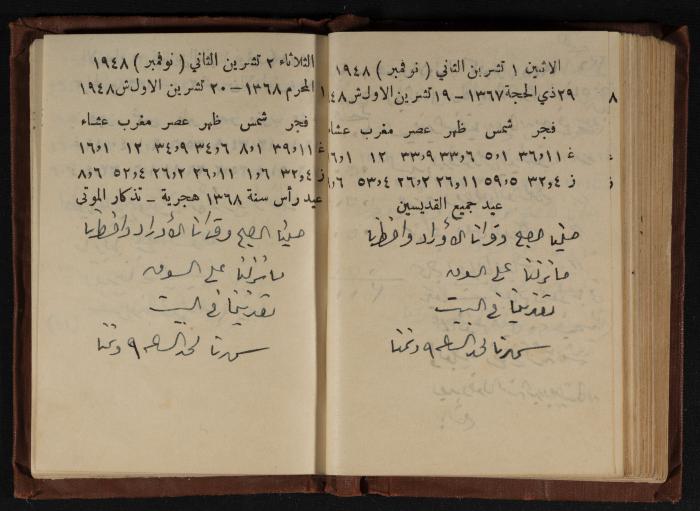 الاثنين ١ تشرين الثاني ( نوفمبر ) ١٩٤٨
٢٩ ذي الحجة ١٣٦٧ – ١٩ تشرين الاول ش ٤٨
فجر شمس ظهر عصر مغرب عشاء
غ ١١و٣٦ ١و٥ ٦و٣٣ ٩و٣٣ ١٢ ١و١٦
ز ٤و٣٢ ٥و٥٩ ١١و٢٦ ٢و٢٦ ٤و٥٣ ٦و
عيد جميع القديسين
صلينا الصبح وقرأنا الأوراد وافطرنا
ما نزلنا على السوق
تغدينا في البيت
سهرنا لحد الساعه ٩ ونمنا
الثلاثاء ٢ تشرين الثاني ( نوفمبر ) ١٩٤٨
١ المحرم ١٣٦٨ – ٢٠ تشرين الاول ش ١٩٤٨
فجر شمس ظهر عصر مغرب عشاء
غ ١١و٣٩ ١و٨ ٦و٣٤ ٩و٣٤ ١٢ ١و١٦
ز ٤و٣٢ ٦و١ ١١و٢٦ ٢و٢٦ ٤و٥٢ ٦و٨
عيد رأس سنة ١٣٦٨ هجرية – تذكار الموتى
صلينا الصبح وقرأنا الأوراد وافطرنا
ما نزلنا على السوق
تغدينا في البيت
سهرنا لحد الساعه ٩ ونمنا